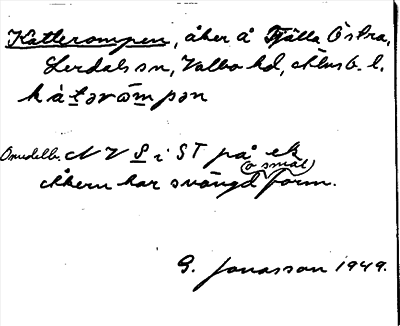 Katterompen, åker å Fjälla Östra,
Lerdals sn, Valbo hd, Älvsb. l.
kàt̲ərωm̲pən
Omedelb. N V S i ST på ek
o smal
Åkern har svängd form.
G. Jonasson 1949.